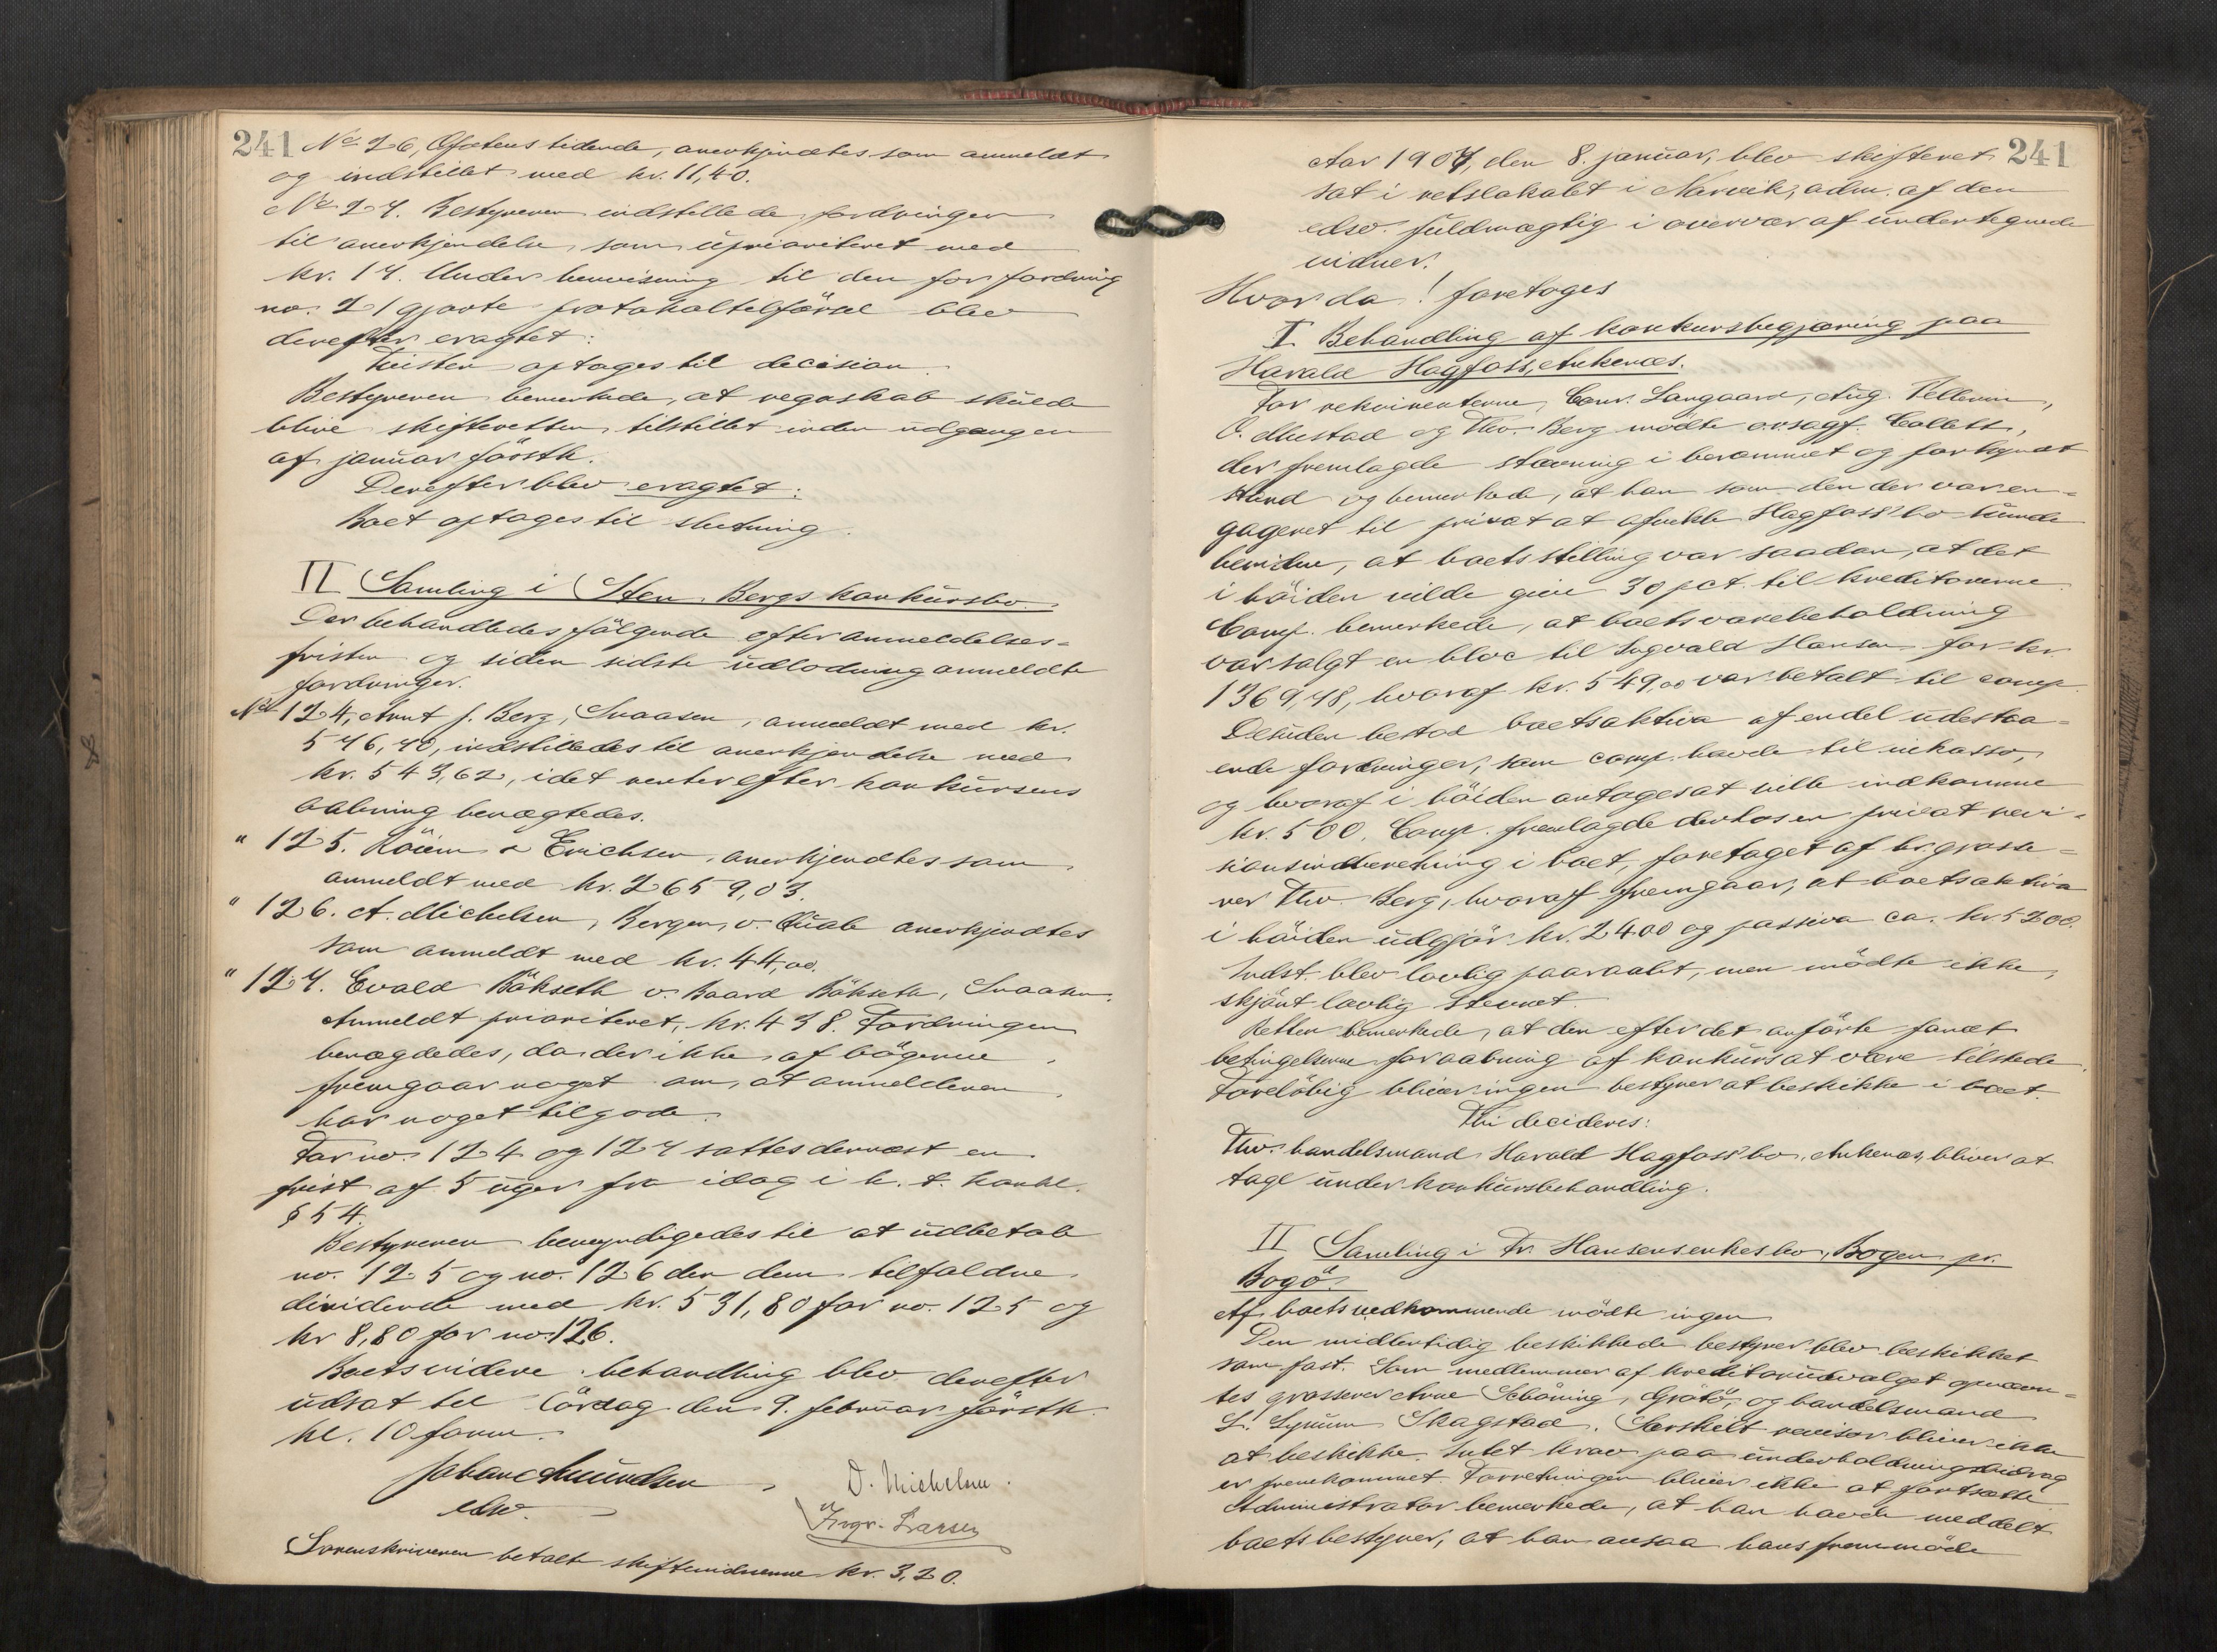 241 No 26, Ofotens tidende, anerkjendtes som anmeldt
og indstillet med kr. 11,40.
No 27. Bestyreren indstillede fordringen
til anerkjendelse som uprioriteret med
kr. 17. Under henvisning til den for fordring
no. 21 gjorte protokoltilførsel blev
derefter eragtet:
Tvisten optages til decision.
Bestyreren bemerkede, at regnskab skulde
blive skifteretten tilstillet inden udgangen
af januar førstk.
Derefter blev eragtet:
Boet optages til slutning.
II Samling i Sten. Bergs konkursbo.
Der behandledes følgende efter anmeldelses-
fristen og siden sidste udlodning anmeldte
fordringer.
No 124, Arnt J. Berg, Snaasen, anmeldt med kr.
546,40, indstilledes til anerkjendelse med
kr. 543,62, idet renter efter konkursens
aabning benægtedes.
" 125. & Erichsen, anerkjendtes som
anmeldt med kr. 2659,03.
" 126. A. Michelsen, Bergen, v. Quale anerkjendtes
som anmeldt med kr. 44,00.
" 127. Evald Bøkseth v. Baard Bøkseth, Snaasen.
Anmeldt prioriteret, kr. 438. Fordringen
benægdedes, da der ikke af bøgerne
fremgaar noget om, at anmelderen
har noget tilgode.
For no. 124 og 127 sattes dernæst en
frist af 5 uger fra idag i h. t. konkl.
§ 54.
Bestyreren bemyndigedes til at udbetale
no. 125 og no. 126 den dem tilfaldne
dividende med kr. 531,80 for no. 125 og
kr 8,80 for no. 126.
Boets videre behandling blev derefter
udsat til Lørdag den 9. februar førstk.
kl. 10 form.
Johan Amundsen
edsv.
O. Michelsen.
Ingv. Larsen
Sorenskriveren betalte skiftevidnerne kr. 3,20.
241
Aar 1907, den 8. januar, blev skifteret
sat i retslokalet i Narvik, adm. af den
edsv. fuldmægtig i overvær af undertegnede
vidner.
Hvor da! foretoges
I. Behandling af konkursbegjæring paa
Harald Hagfoss, Ankenæs.
For rekvirenterne, Conr. Langaard, Aug. Pellerin,
O. Mustad og Thv. Berg mødte o.r.sagf. Collett,
der fremlagde stævning i berammet og forkyndt
stand og bemerkede, at han som den der var en-
gageret til privat at afvikle Hagfoss' bo kunde
bevidne, at boets stilling var saadan, at det
i høiden vilde give 30 pct. til kreditorerne.
Comp. bemerkede, at boets varebeholdning
var solgt en bloc til Ingvald Hansen for kr.
1369,48, hvoraf kr. 549,00 var betalt til comp.
Desuden bestod boets aktiva af endel udestaa-
ende fordringer, som comp. havde til inkasso,
og hvoraf i høiden antages at ville indkomme
kr. 500. Comp. fremlagde derhos en privat revi-
sionsindberetning i boet, foretaget af hr. grosse-
rer Thv. Berg, hvoraf fremgaar, at boets aktiva
i høiden udgjør kr. 2400 og passiva ca. kr. 5200.
Indst. blev lovlig paaraabt, men mødte ikke,
skjønt lovlig stevnet.
Retten bemerkede, at den efter det anførte fandt
betingelserne for aabning af konkurs at være tilstede.
Foreløbig bliver ingen bestyrer at beskikke i boet.
Thi decideres:
Thv. handelsmand Harald Hagfoss' bo, Ankenæs, bliver at
tage under konkursbehandling.
II Samling i Fr. Hansens enkes bo, Bogen pr.
Bogø.
Af boets vedkommende mødte ingen.
Den midlertidig beskikkede bestyrer blev beskikket
som fast. Som medlemmer af kreditorudvalget opnævn-
tes grosserer Arne Schøning, Grøtø, og handelsmand
L. Skagstad. Særskilt revisor bliver ikke
at beskikke. Intet krav paa underholdningsbidrag
er fremkommet. Forretningen bliver ikke at fortsætte.
Administrator bemerkede, at han havde meddelt
boets bestyrer, at han ansaa hans fremmøde